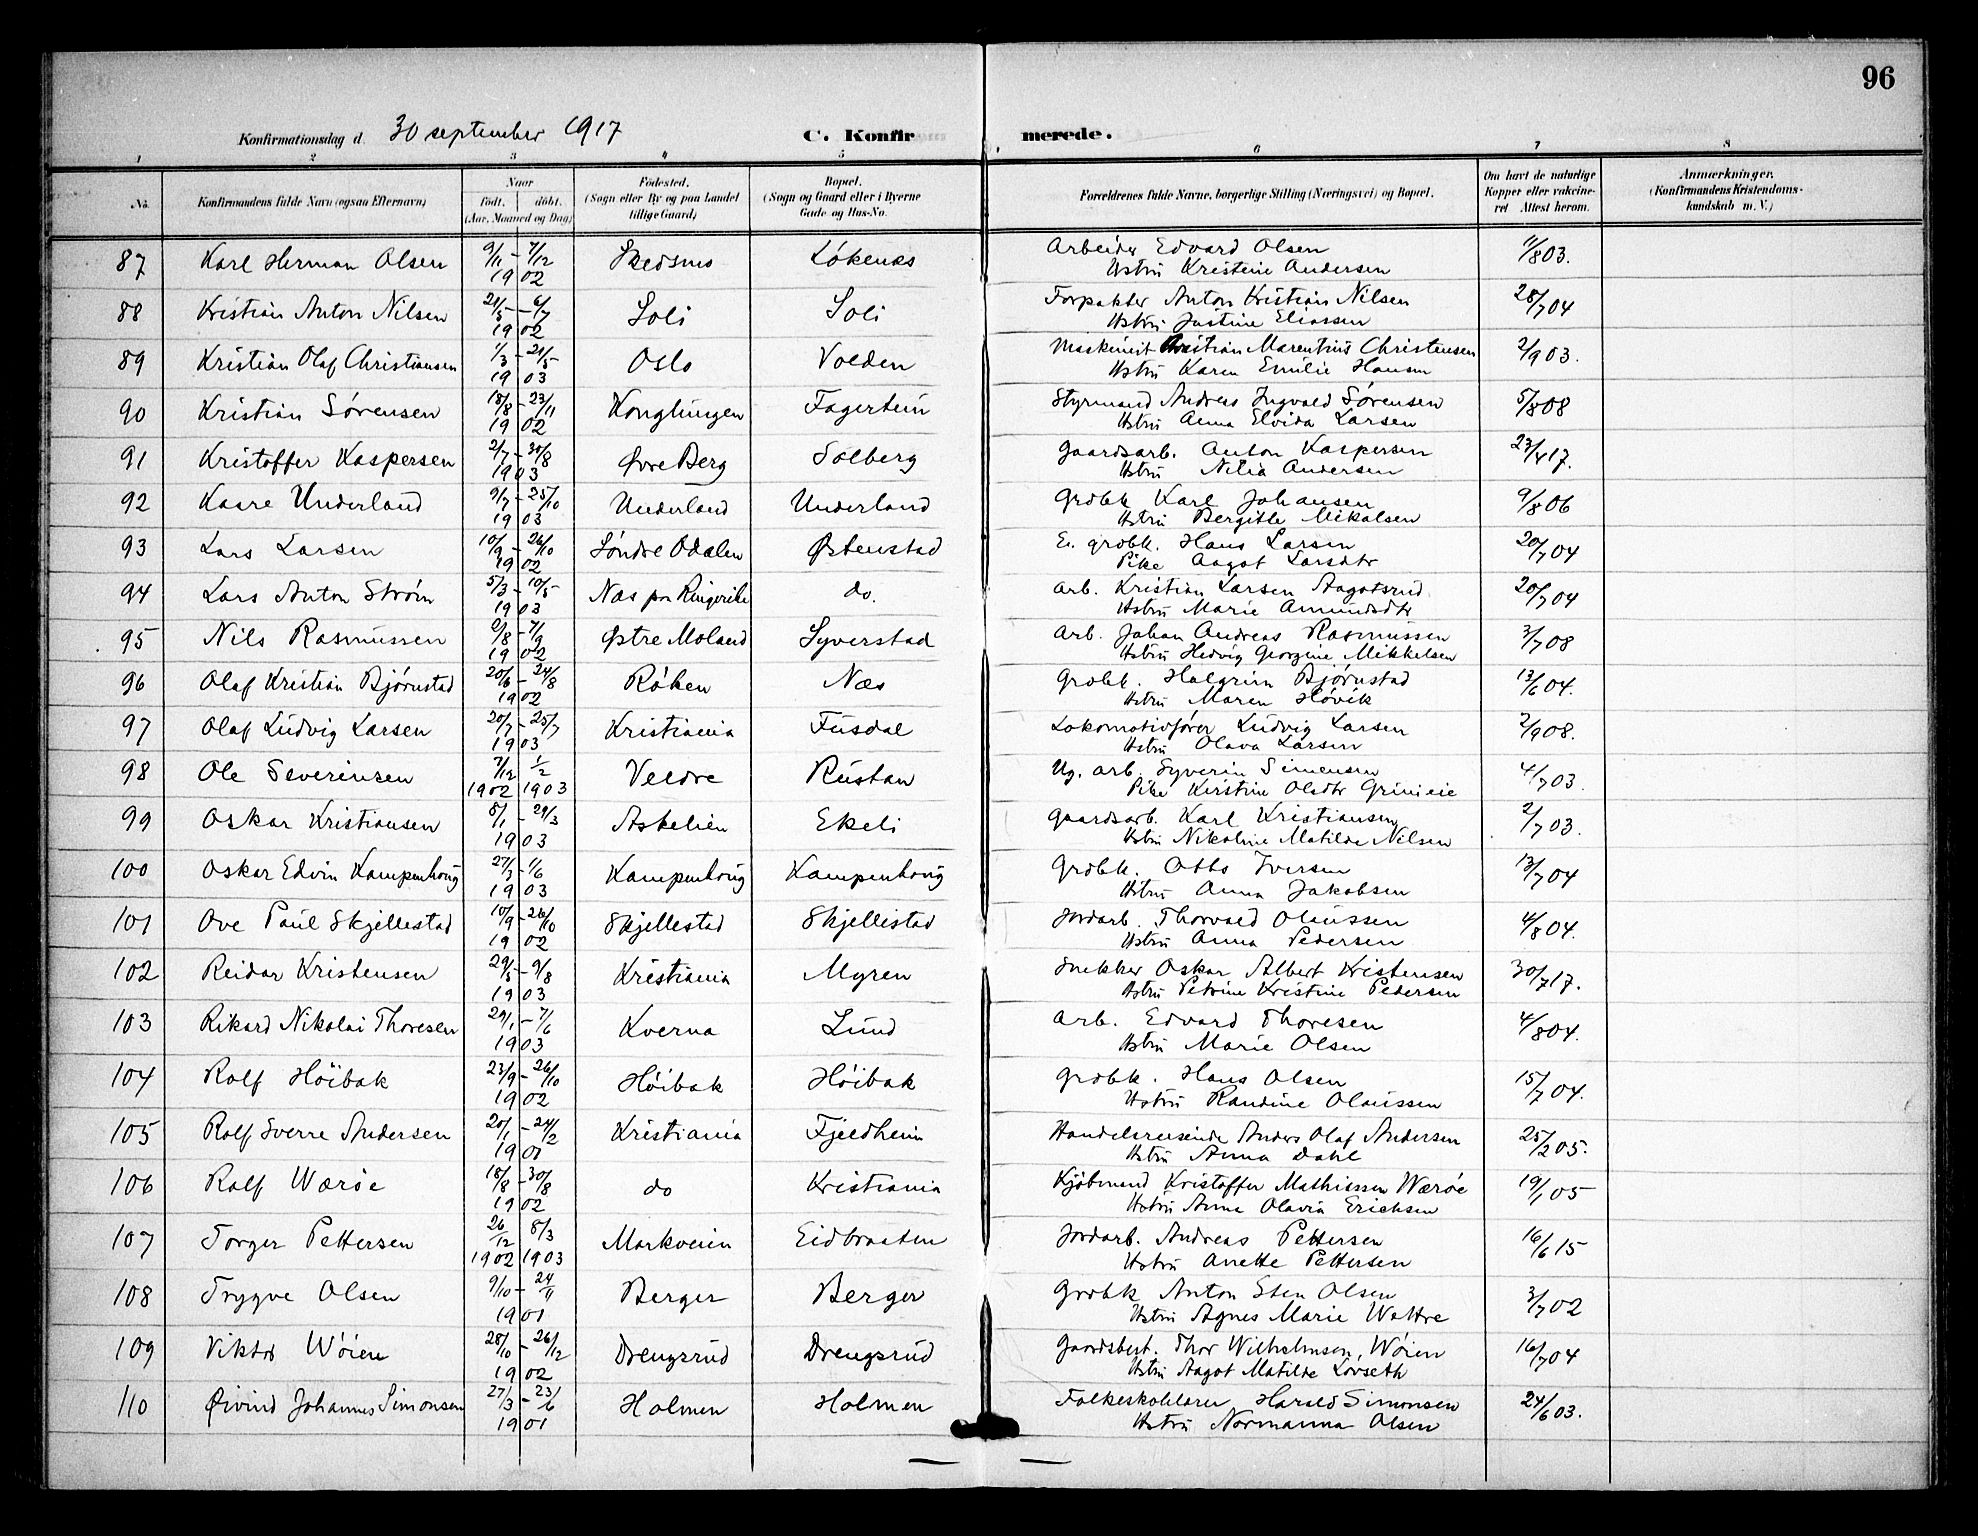 96
Konfirmationsdag d. 30 september 1917
C. Konfirmerede.
1 2 3 4 5 6 7 8
No. Konfirmandens fulde Navn (ogsaa Efternavn) Naar født. døbt. (Aar, Maaned og Dag) Fødested. (Sogn eller By og paa Landet tillige Gaard) Bopæl. (Sogn og Gaard eller i Byerne Gade og Hus-No. Forældrenes fulde Navne, borgerlige Stilling (Næringsvei) og Bopæl. Om havt de naturlige Kopper eller vakcineret Attest herom. Anmærkninger. (Konfirmandens Kristendomskundskab m. V.)
87 Karl Herman Olsen 9/11 - 7/12 1902 Skedsmo Løkenes Arbeider Edvard Olsen 11/8 03.
Hstru Kristine Andersen
88 Kristian Anton Nilsen 21/5 - 6/7 1902 Soli Soli Forpakter Anton Kristian Nilsen 28/7 04
Hstru Justine Eliassen
89 Kristian Olaf Christiansen 1/3 - 21/5 1903 Oslo Volden Maskinist Kristian Marentius Christensen 2/9 03.
Hstru Karen Emilie Hansen
90 Kristian Sørensen 18/8 - 23/11 1902 Konglungen Fagertun Styrmand Andreas Ingvald Sørensen 5/8 08
Hstru Anna Elvida Larsen
91 Kristoffer Kaspersen 2/7 - 30/8 1903 Øvre Berg Solberg Gaardsarb. Anton Kaspersen 23/4 17.
Hstru Nilia Andersen
92 Kaare Underland 9/7 - 25/10 1903 Underland Underland Grdbk Karl Johansen 9/8 06
Hstru Bergitte Mikalsen
93 Lars Larsen 10/9 - 26/10 1902 Søndre Odalen Østenstad E. grdbk. Hans Larsen 20/7 04
Pike Aagot Larsdtr
94 Lars Anton Strøm 5/3 - 10/5 1903 Næs paa Ringerike do. Arb. Kristian Larsen Aagotsrud 20/7 04
Hstru Marie Amundsdtr
95 Nils Rasmussen 2/8 - 7/9 1902 Østre Moland Syverstad Arb. Johan Andreas Rasmussen 3/7 08
Hstru Hedvig Georgine Mikkelsen
96 Olaf Kristian Bjørnstad 20/6 - 24/8 1902 Røken Næs Grdbk. Halgrim Bjørnstad 13/6 04.
Hstru Maren Høvik
97 Olaf Ludvig Larsen 20/7 - 25/7 1903 Kristiania Fusdal Lokomotivfører Ludvig Larsen 2/9 08.
Hstru Olava Larsen
98 Ole Severinsen 7/12 1902 1/2 1903 Veldre Rustan Ug. arb. Syverin Simensen 4/7 03.
Pike Kirstine Olsdtr
99 Oskar Kristiansen 8/1 - 29/3 1903 Askelien Ekeli Gaardsarb. Karl Kristiansen 2/7 03.
Hstru Nikoline Matilde Nilsen
100 Oskar Edvin Kampenhaug 27/3 - 1/6 1903 Kampenhaug Kampenhaug Grdbk. Otto Iversen 13/7 04
Hstru Anna Jakobsen
101 Ove Paul Skjellestad 10/9 - 26/10 1902 Skjellestad Skjellestad Jordarb. Thorvald Olaussen 4/8 04.
Hstru Anna Pedersen
102 Reidar Kristensen 29/5 - 9/8 1903 Kristiania Myren Snekker Oskar Albert Kristensen 30/7 17.
Hstru Petrine Kristine Pedersen
103 Rikard Nikolai Thoresen 29/1 - 7/6 1903 Kverna Lund Arb. Edvard Thoresen 4/8 04.
Hstru Marie Olsen
104 Rolf Høibak 23/9 - 26/10 1902 Høibak Høibak Grdbk. Hans Olsen 15/7 04.
Hstru Randine Olaussen
105 Rolf Sverre Andersen 20/1 - 24/2 1901 Kristiania Fjeldheim Handelsreisende Anders Olaf Andersen 25/2 05.
Hstru Anna Dahl
106 Rolf Wærøe 18/8 - 30/8 1902 do Kristiania Kjøbmand Kristoffer Mathiassen Wærøe 19/1 05
Hstru Anna Olavia Erichsen
107 Torger Pettersen 26/12 1902 8/3 1903 Markveien Eidbraaten Jordarb. Andreas Pettersen 16/6 15
Hstru Anette Pettersen
108 Trygve Olsen 9/10 - 24/11 1901 Berger Berger Grdbk Anton Sten Olsen 3/7 02
Hstru Agnes Marie Wettre
109 Viktor Wøien 28/10 - 26/12 1902 Drengsrud Drengsrud Gaardsbest. Thor Wilhelmsen Wøien 16/7 04
Hstru Aagot Matilde Lovseth
110 Øivind Johannes Simonsen 27/3 - 23/6 1901 Holmen Holmen Folkeskolelærer Harald Simonsen 24/6 03.
Hstru Normanna Olsen